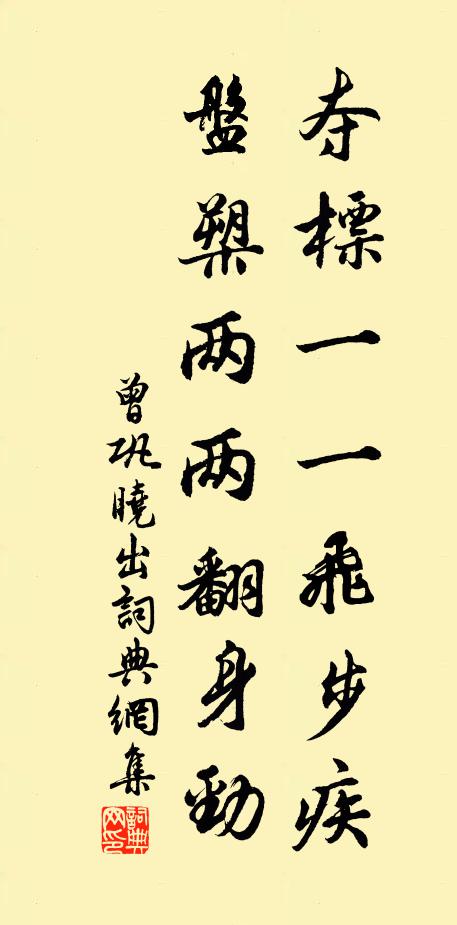 夺標一一飛步疾
盤槊两两翻身勁
曾巩曉出詞典網集
詞典网印